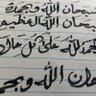 سبحان الله وبحمده
سبحان الله العظيم
الحمد لله على كل حال
سبحان الله وبحمد